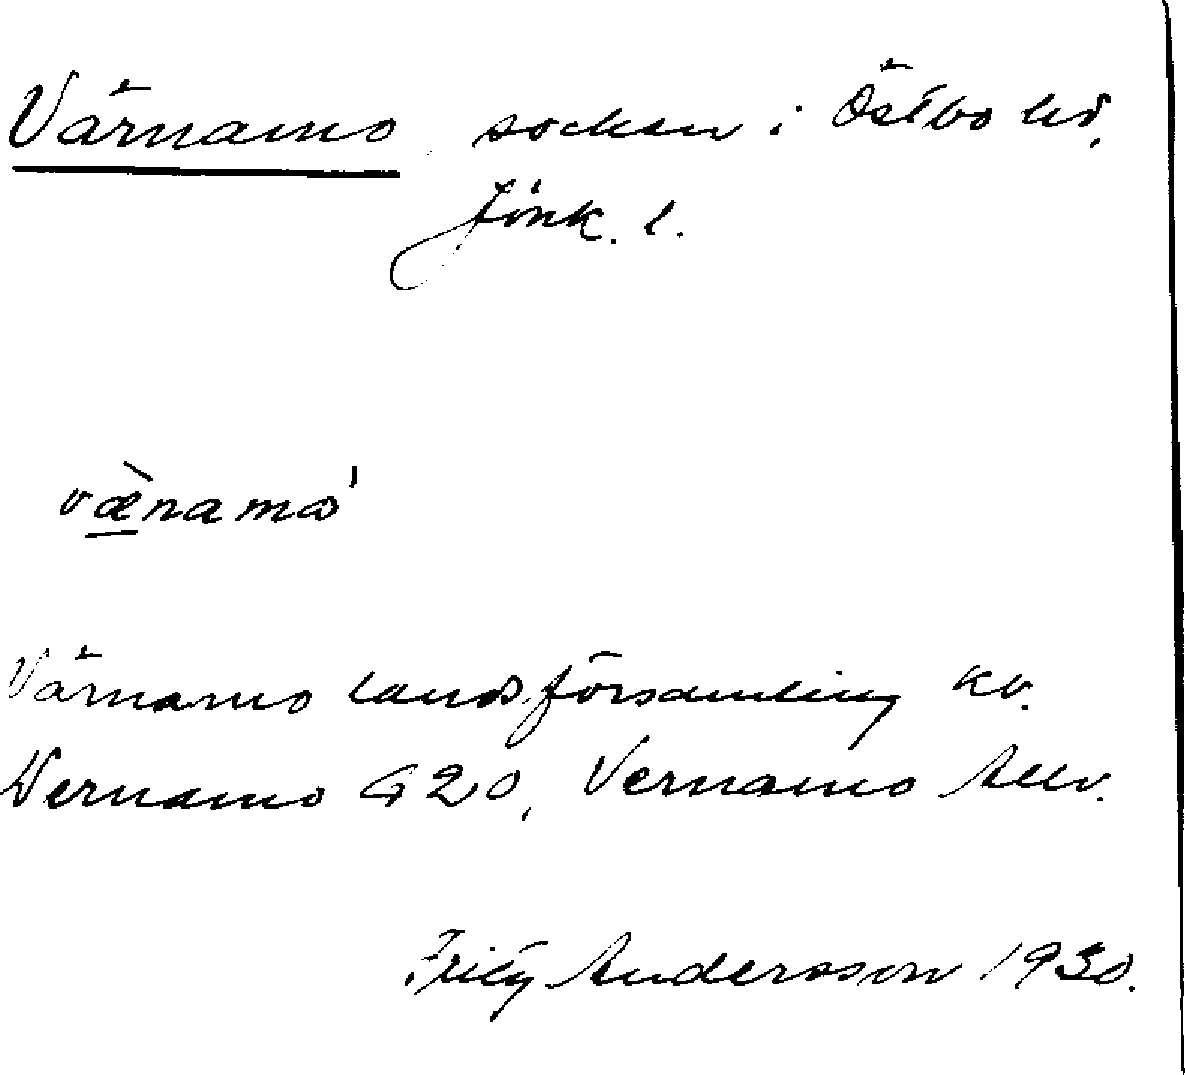 Värnamo, socken i Östbo hd,
Jönk. l.
væ̀namω'
Värnamo landsförsamling Kv.
Wernamo G20, Vernamo Allv.
Fritz Andersson 1930.